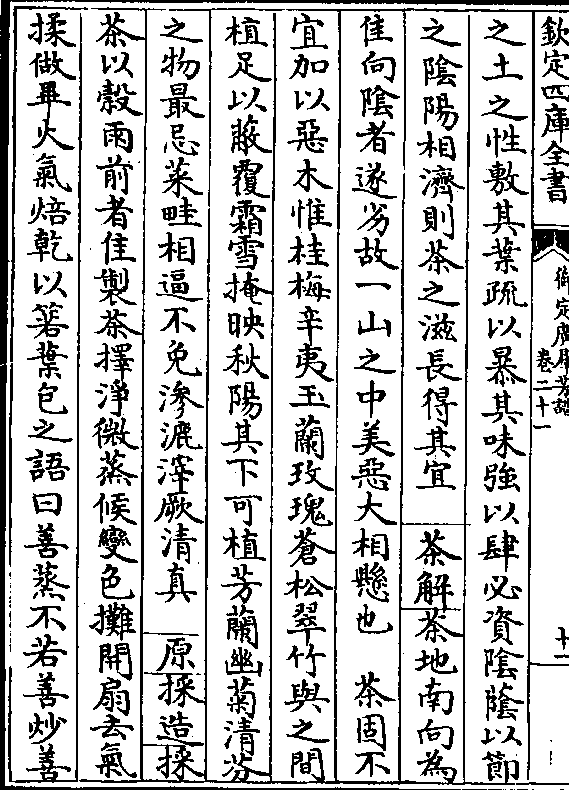 欽定四庫全書
御定廣羣芳譜
卷二十一
十一
之土之性敷其葉疏以暴其味強以肆必資陰蔭以節
之陰陽相濟則茶之滋長得其宜 茶解茶地南向為
佳向陰者遂劣故一山之中美惡大相懸也 茶固不
宜加以惡木惟桂梅辛夷玉蘭玫瑰蒼松翠竹與之間
植足以蔽覆霜雪掩映秋陽其下可植芳蘭幽菊清芬
之物最忌菜畦相逼不免滲漉滓厥清真 原採造採
茶以穀雨前者佳製茶擇淨微蒸候變色攤開扇去氣
揉做畢火氣焙乾以箬葉包之語曰善蒸不若善炒善